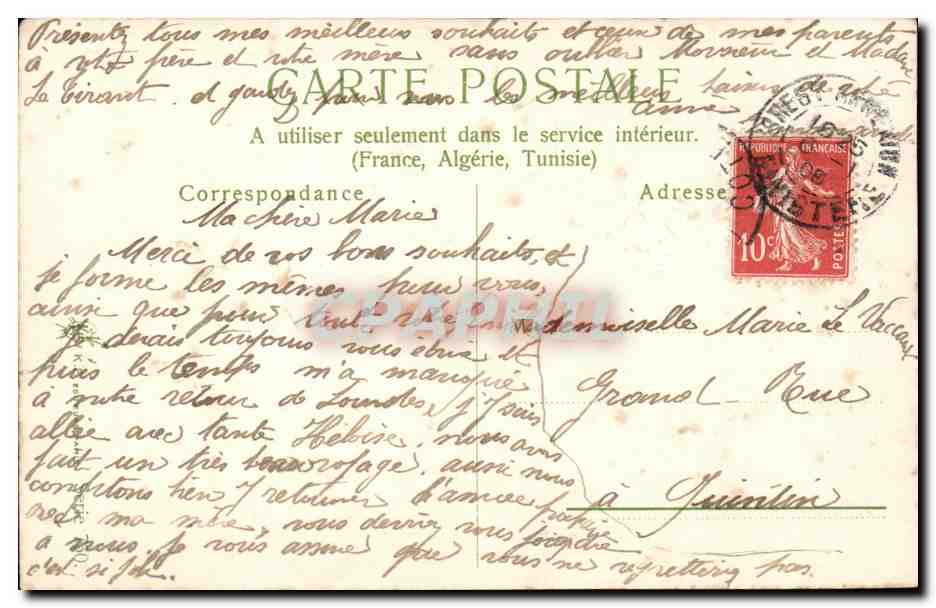 Présentez tous mes meilleurs souhaits et ceux de mes parents
à votre frère et votre mère sans oublier Monsieur et Madame
Le Tirant. et gardez pour vous les meilleurs baisers de votre
amie
CARTE POSTALE
A utiliser seulement dans le service intérieur.
(France, Algérie, Tunisie)
Correspondance
Adresse
REPUBLIQUE FRANÇAISE
10c
POSTES
FINISTERE
Ma chère Marie
Merci de vos bons souhaits, et
je forme les mêmes pour vous,
ainsi que pour toute votre famille
je devais toujours vous écrire et
puis le temps m'a manqué
à notre retour de Lourdes, j'y suis
allée avec tante Héloïse, nous avons
fait un très beau voyage, aussi nous
comptons bien y retourner l'année prochaine
avec ma mère, vous devriez vous joindre
à nous. Je vous assure que vous ne regretteriez pas.
c'est si joli.
Mademoiselle Marie Le Vacant
Grand Rue
à Quintin
CPAPHIL